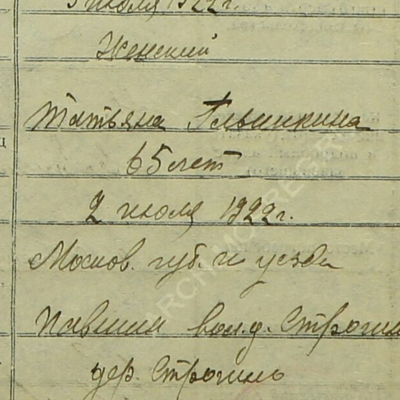 3 июля 1922г.
Женский
Татьяна Гльинкина
65 лет
2 июля 1922г.
Москов. губ. и уезда
Павшин вол. д. Строгин
дер. Строгино